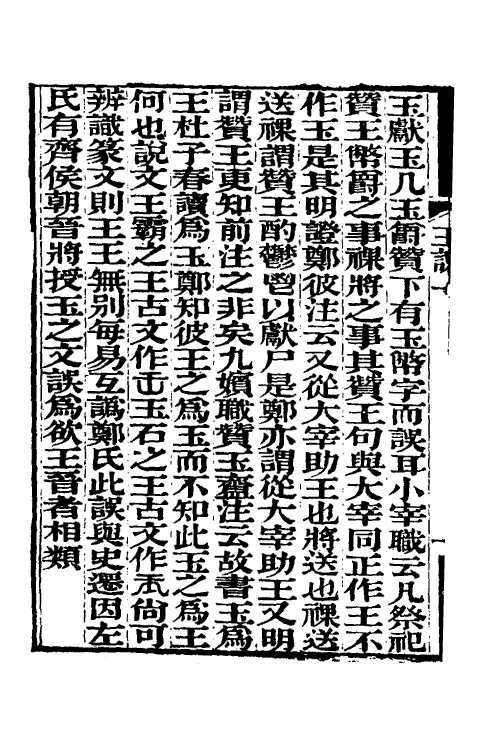 玉獻玉几玉爵贊下有玉幣字而誤耳小宰職云凡祭祀
贊王幣爵之事祼將之事其贊王句與大宰同正作王不
作玉是其明證鄭彼注云又從大宰助王也將送也祼送
送祼謂贊王酌鬱鬯以獻尸是鄭亦謂從大宰助王又明
謂贊王更知前注之非矣九嬪職贊玉齍注云故書玉爲
王杜子春讀爲玉鄭知彼王之爲玉而不知此玉之爲王
何也說文王霸之王古文作𠙻玉石之王古文作𤣪尙可
辨識篆文則王王無别每易互譌鄭氏此誤與史遷因左
氏有齊侯朝晉將授玉之文誤爲欲王晉者相類